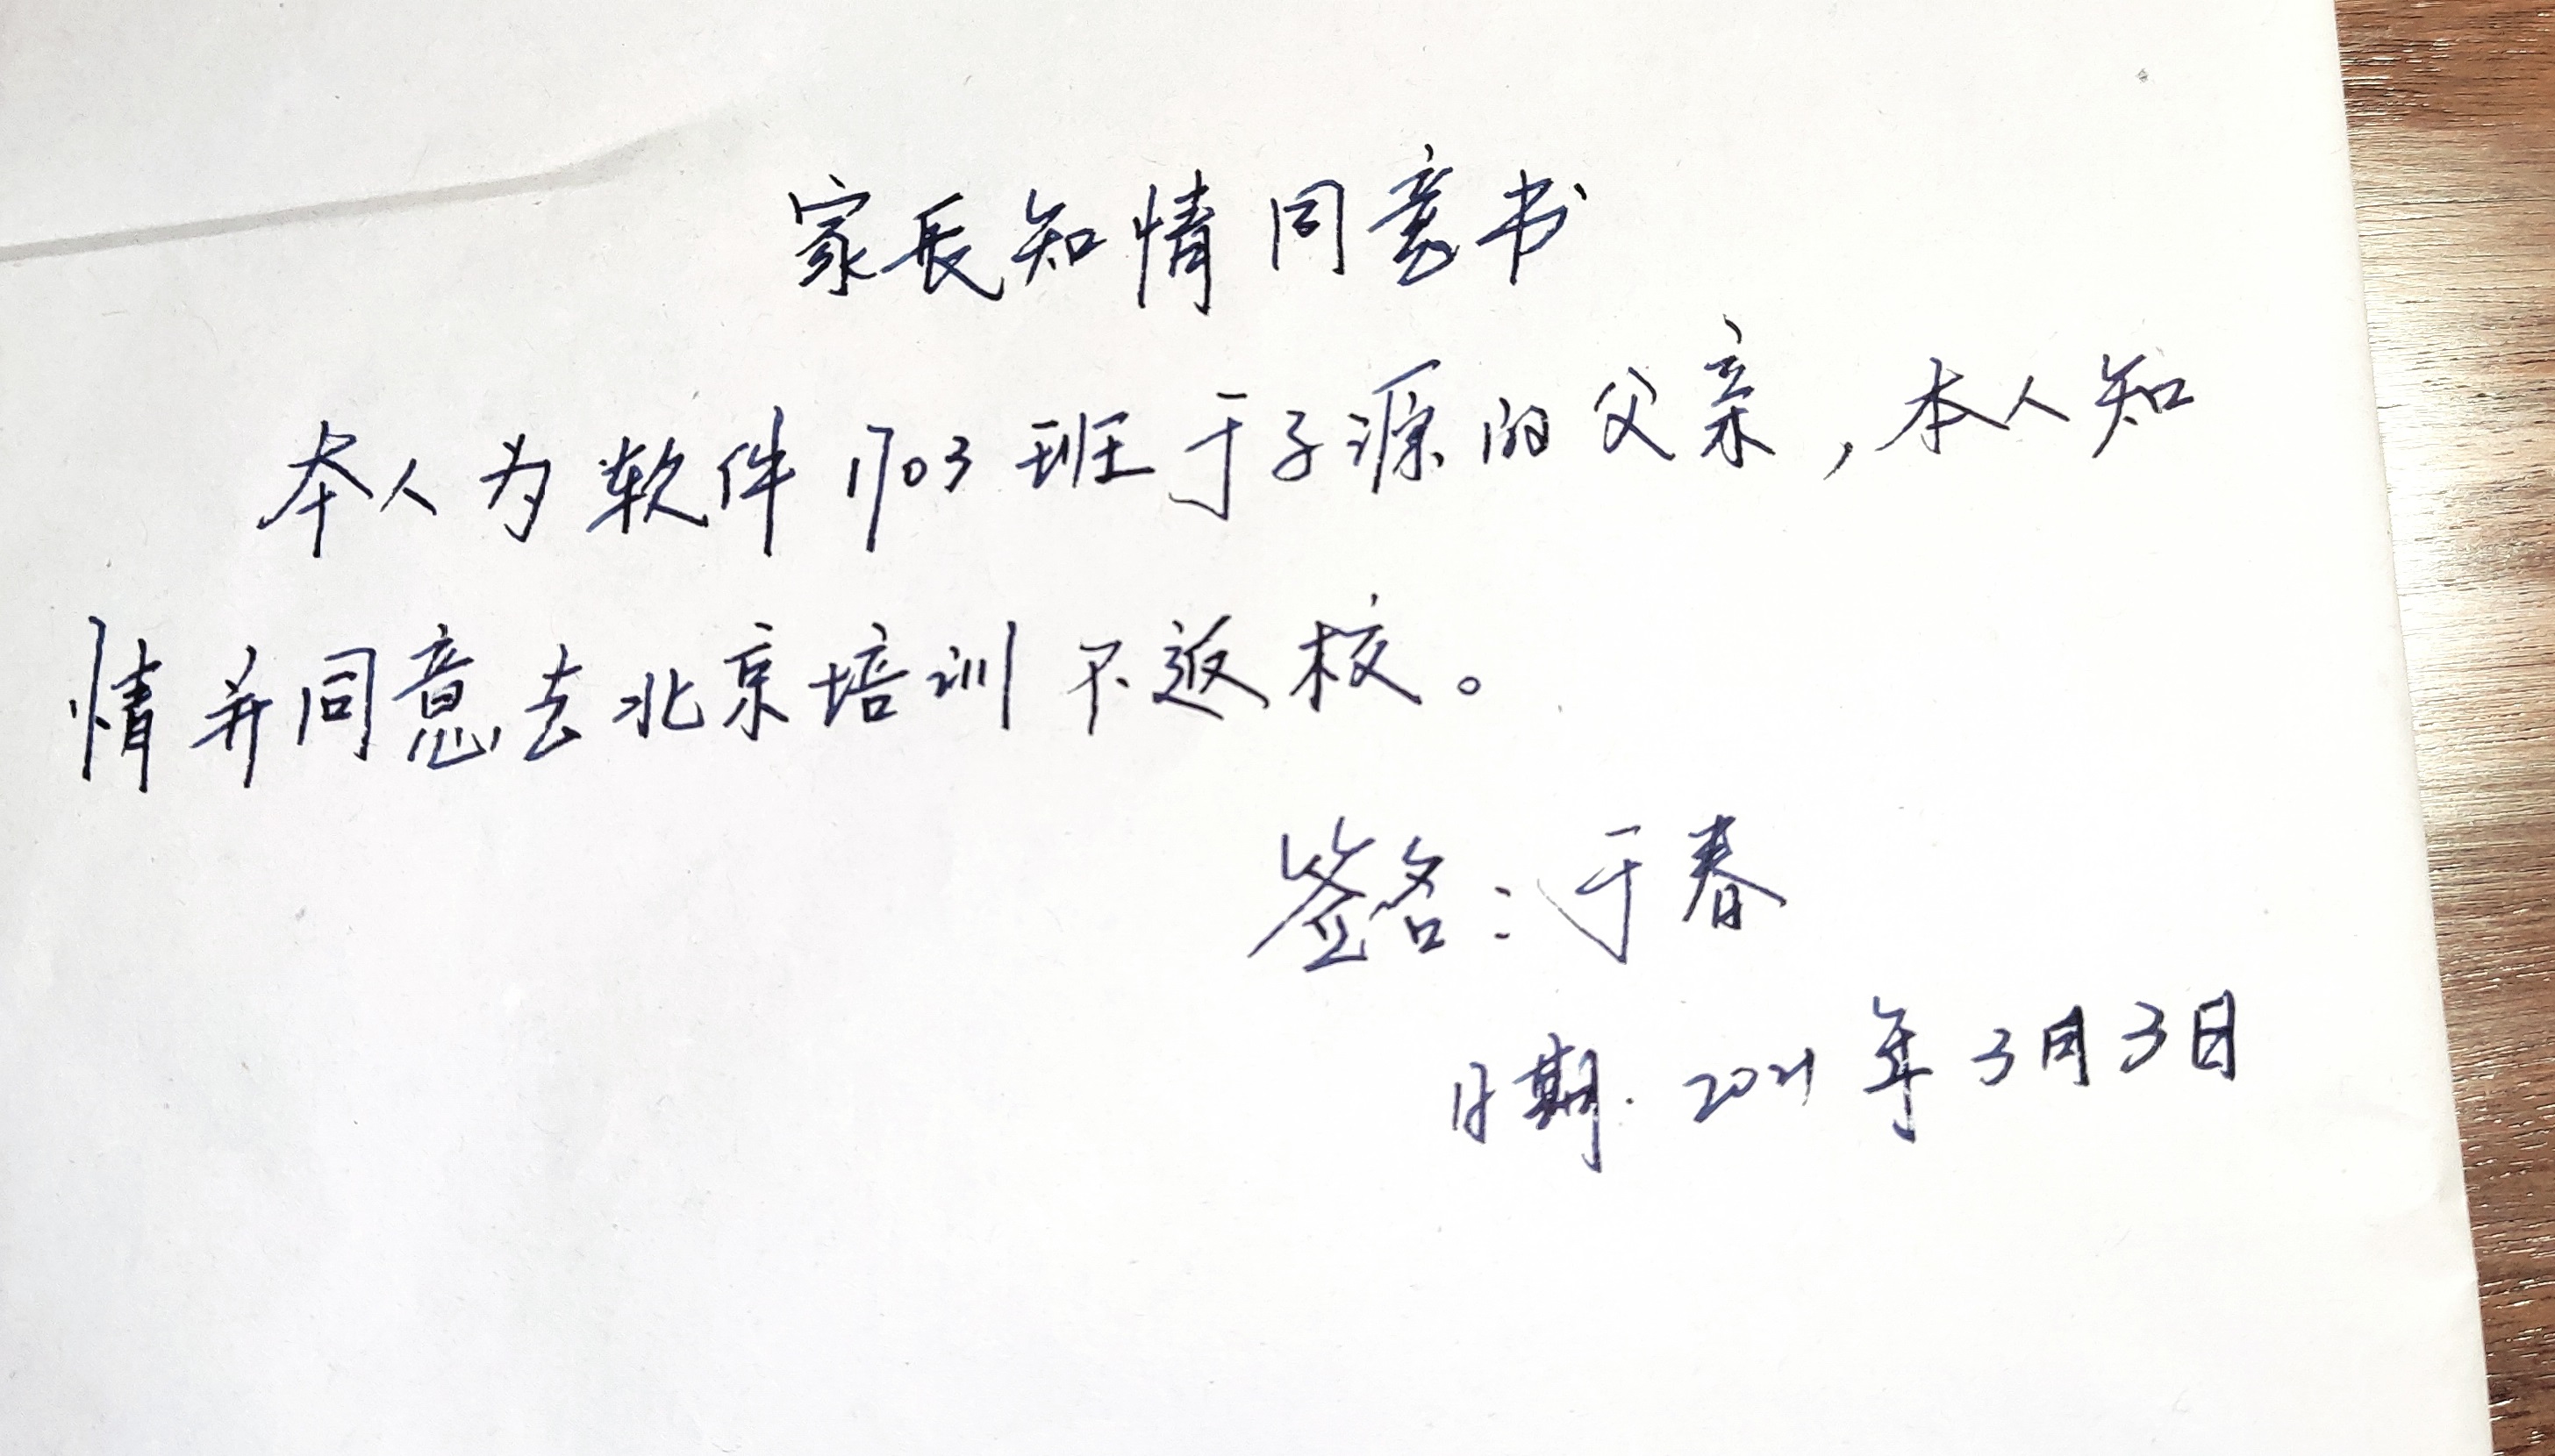 家长知情同意书
本人为软件1703班于子源的父亲,本人知
情并同意去北京培训不返校。
签名:于春
日期.2021年3月3日